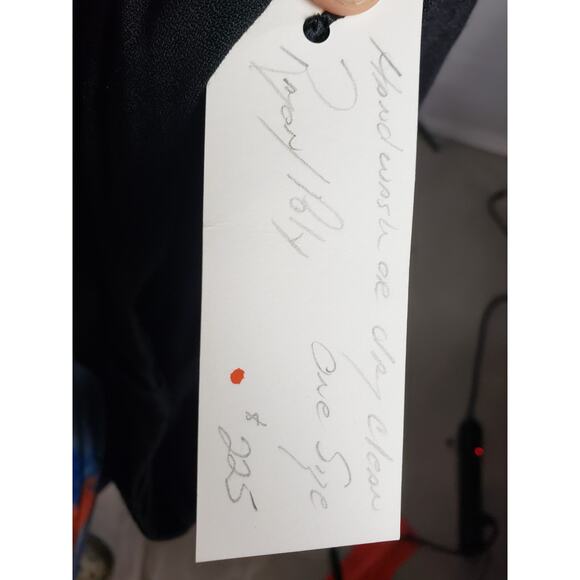 Hand wash or dry clean
Rayon/Poly
One Size
$225